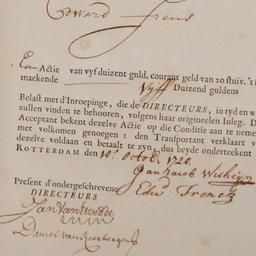 Edward Frens
Een Actie van vyf duizent guld. courant geld van 20 stuiv. 't
maekende Vyff Duizend guldens
Belast met d'Inroepinge, die de DIRECTEURS, in tyd en w
zullen vinden te behooren, volgens haar origineelen Inleg. D
Acceptant bekent dezelve Actie op die Conditie aan te neme
met volkomen genoegen: den Transportant verklaart v
dezelve voldaan en betaalt te zyn, dus beyde onderteekent
ROTTERDAM den 10: Octob 1720
Jan Jacob
Present d'ondergeschreven Edw:
DIRECTEURS
Jan Van